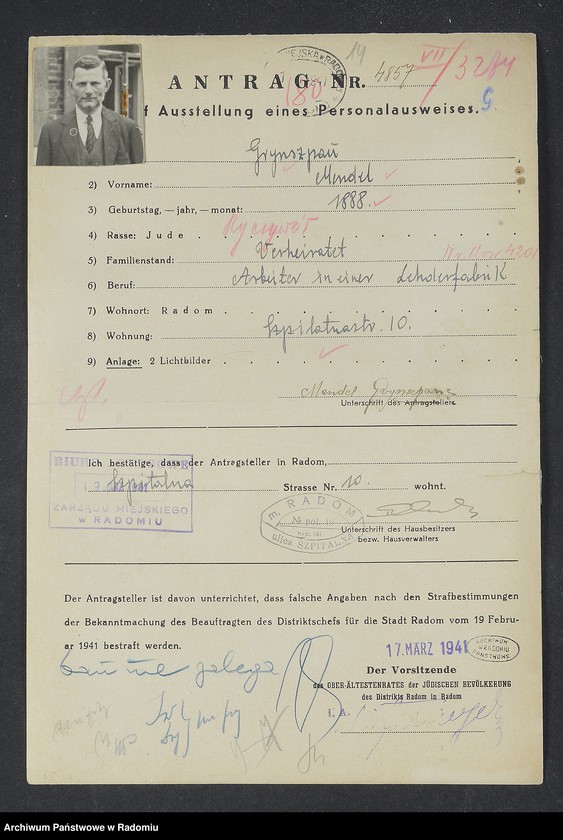 14
ANTRAG NR. 4857 VII/3284
180
auf Ausstellung eines Personalausweises. G
Grynszpan
2) Vorname: Mendel
3) Geburtstag, — jahr, — monat: 1888.
4) Rasse: Jude
5) Familienstand: Verheiratet
6) Beruf: Arbeiter in einer Lederfabrik
7) Wohnort: Radom
8) Wohnung: Szpitalnastr. 10.
9) Anlage: 2 Lichtbilder
Mendel Grynszpan
Unterschrift des Antragstellers
Ich bestätige, dass der Antragsteller in Radom,
Szpitalna Strasse Nr. 10. wohnt.
ZARZĄDU MIEJSKIEGO
w RADOMIU
m. RADOM
№ pol. 10
ulica SZPITALNA
Unterschrift des Hausbesitzers
bezw. Hausverwalters
Der Antragsteller ist davon unterrichtet, dass falsche Angaben nach den Strafbestimmungen
der Bekanntmachung des Beauftragten des Distriktschefs für die Stadt Radom vom 19 Febru-
ar 1941 bestraft werden.
17. MÄRZ 1941
ARCHIWUM
w RADOMIU
PAŃSTWOWE
Der Vorsitzende
des OBER-ÄLTESTENRATES der JÜDISCHEN BEVÖLKERUNG
des Distrikts Radom in Radom
I. A.
Archiwum Państwowe w Radomiu